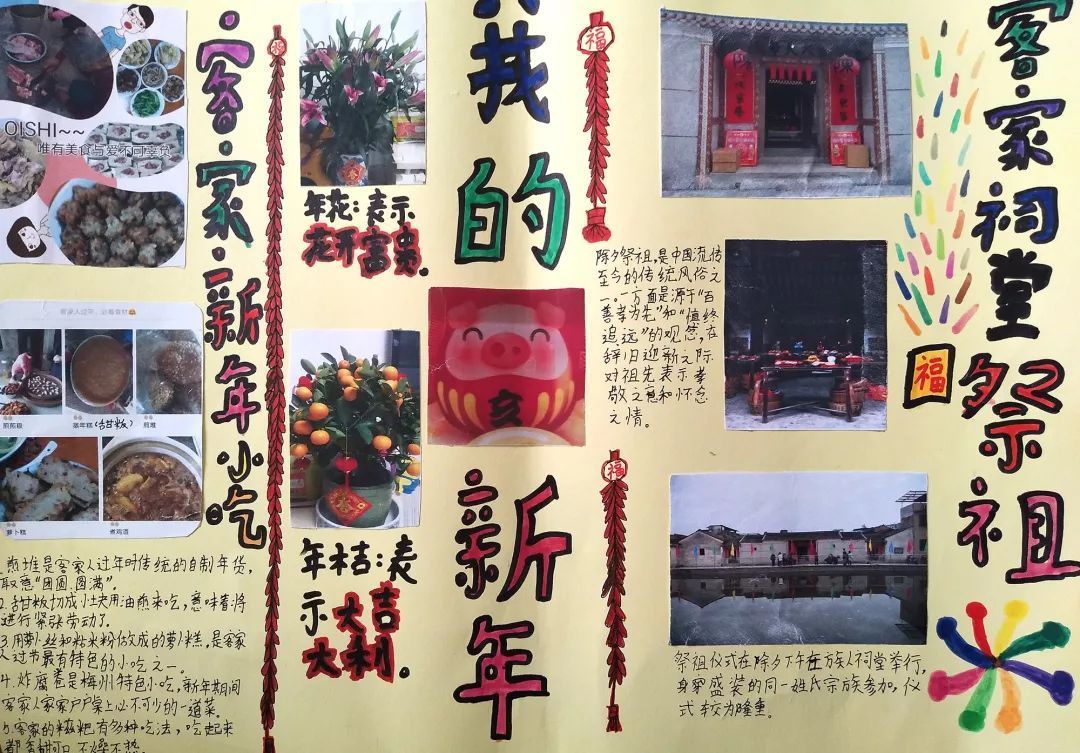 OISHI~~
唯有美食与爱不可辜负
客家人过年，必备食材
蒸年糕(甜粄)
煎堆
萝卜糕
煮鸡酒
煎堆是客家人过年时传统的自制年货，
取意“团圆圆满”。
2.甜粄切成小块用油煎来吃，意味着将
进行紧张劳动了。
3.用萝卜丝和粘米粉做成的萝卜糕，是客家
人过节最有特色的小吃之一。
4.炸腐卷是梅州特色小吃，新年期间
客家人家家户户桌上必不可少的一道菜。
5.客家的糍粑有多种吃法，吃起来
都香甜可口 不燥不热
客家新年小吃
福
年花：表示
花开富贵。
年桔：表
示大吉
大利。
春
我的新年
亥
福
福
除夕祭祖，是中国流传
至今的传统风俗之
一。一方面是源于“百
善孝为先”和“慎终
追远”的观念，在
辞旧迎新之际
对祖先表示孝
敬之意和怀念
之情。
福
祭祖仪式在除夕下午在族人祠堂举行，
身穿盛装的同一姓氏宗族参加，仪
式较为隆重。
客家祠堂祭祖